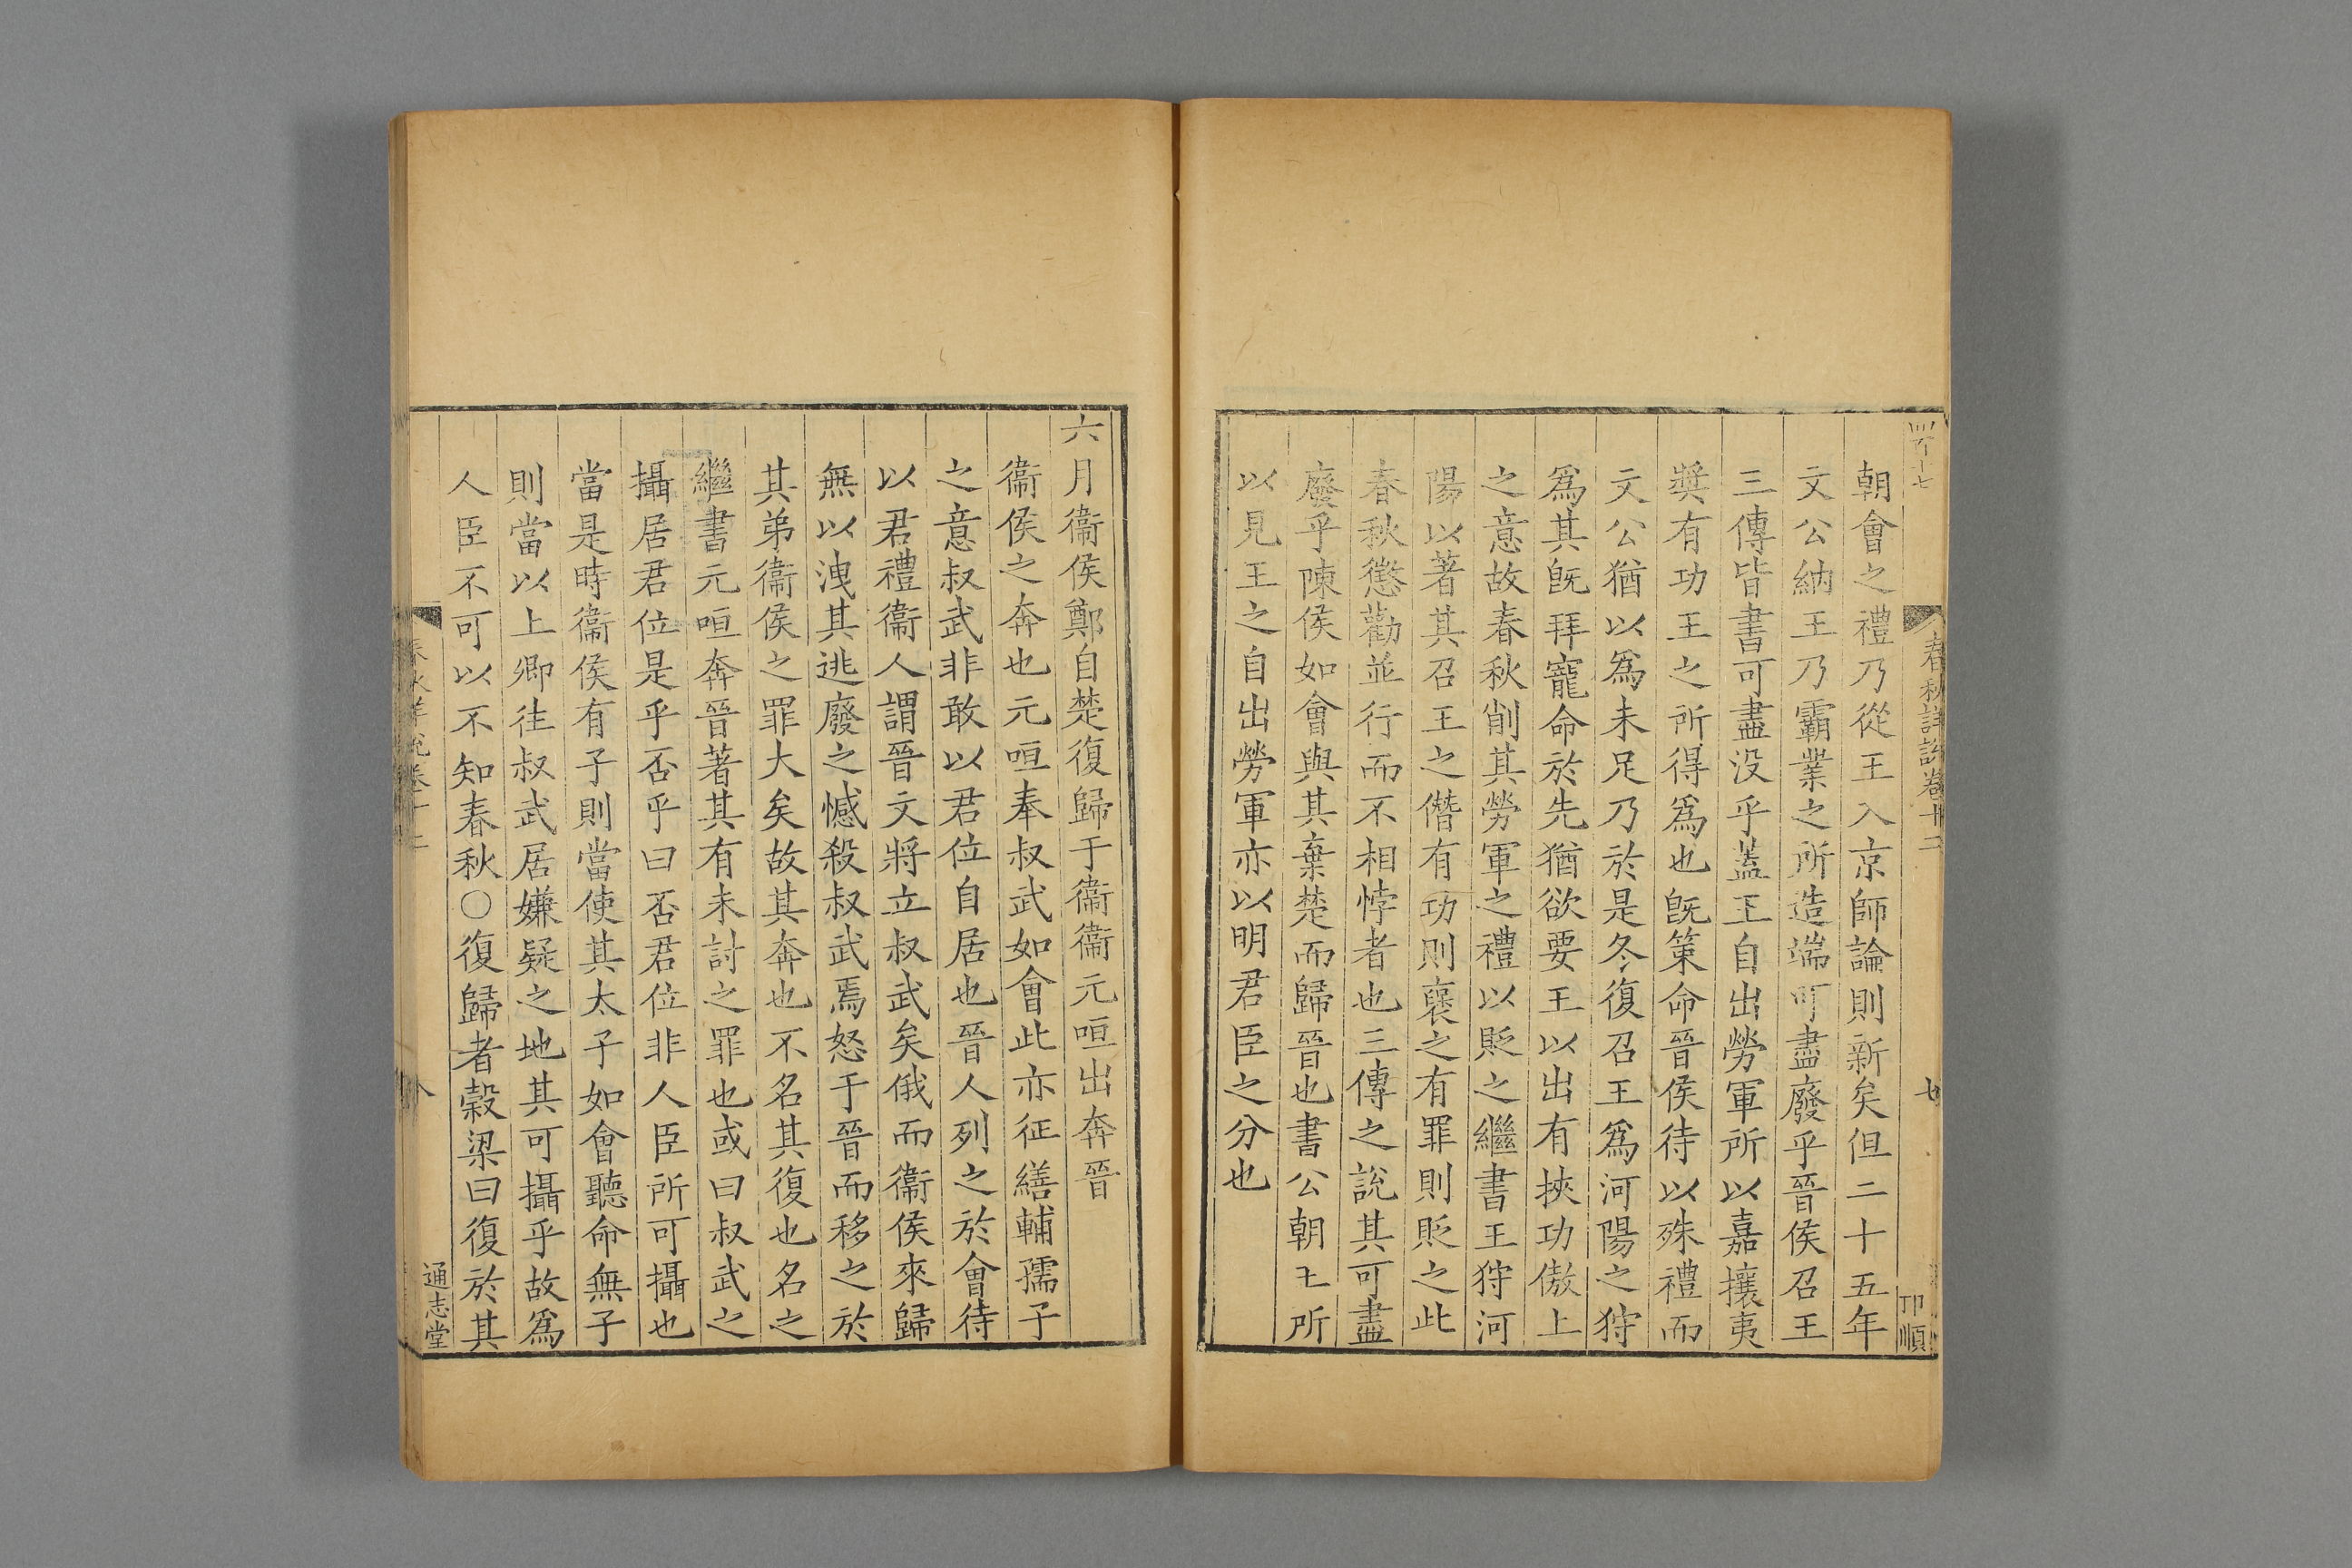 春秋詳說卷十二
七
卭順
朝會之禮乃從王入京師論則新矣但二十五年
文公納王乃霸業之所造端可盡廢乎晉侯召王
三傳皆書可盡没乎葢王自出勞軍所以嘉攘夷
奬有功王之所得爲也旣策命晉侯待以殊禮而
文公猶以爲未足乃於是冬復召王爲河陽之狩
爲其旣拜寵命於先猶欲要王以出有挾功傲上
之意故春秋削其勞軍之禮以貶之繼書王狩河
陽以著其召王之僭有功則襃之有罪則貶之此
春秋懲勸並行而不相悖者也三傳之說其可盡
廢乎陳侯如會與其棄楚而歸晉也書公朝王所
以見王之自出勞軍亦以明君臣之分也
六月衞侯鄭自楚復歸于衞衞元咺出奔晉
衞侯之奔也元咺奉叔武如會此亦征繕輔孺子
之意叔武非敢以君位自居也晉人列之於會待
以君禮衞人謂晉文將立叔武矣俄而衞侯來歸
無以洩其逃廢之憾殺叔武焉怒于晉而移之於
其弟衞侯之罪大矣故其奔也不名其復也名之
繼書元咺奔晉著其有未討之罪也或曰叔武之
攝居君位是乎否乎曰否君位非人臣所可攝也
當是時衞侯有子則當使其太子如會聽命無子
則當以上卿往叔武居嫌疑之地其可攝乎故爲
人臣不可以不知春秋○復歸者榖梁曰復於其
春秋詳說卷十二
八
通志堂